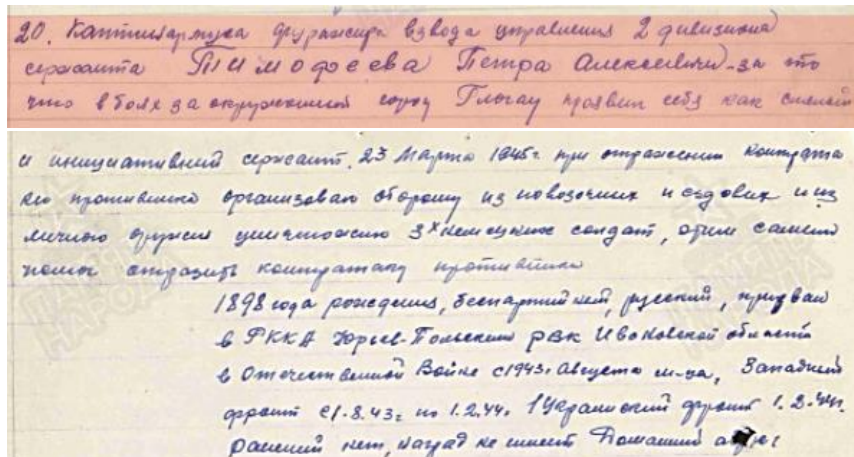 20. Каптинармуса фуражира взвода управления 2 дивизиона
сержанта Тимофеева Петра Алексеевича - за то
что в боях за окруженный город Глогау проявил себя как смелый
и инициативный сержант. 23 марта 1945г. при отражении контратаки
противника организовал оборону из повозочных и ездовых и из
личного оружия уничтожил 3х немецких солдат, этим самым
помог отразить контратаку противника
1898 года рождения, беспартийный, русский, призван
в РККА Юрьев-Польским РВК Ивановской области
в Отечественной Войне с 1943г Августа м-ца, Западный
фронт с 1.8.43г по 1.2.44г. 1 Украинский фронт 1.2.44г.
Ранений нет, наград не имеет Домашний
ПАМЯТЬ НАРОДА
ПАМЯТЬ НАРОДА